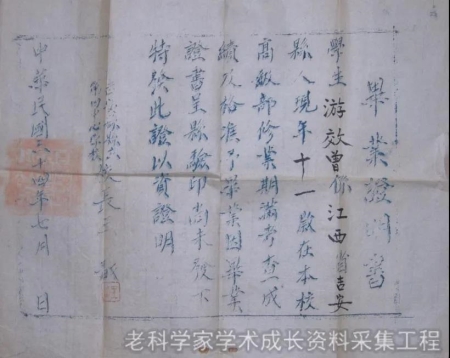 畢業證明書
學生游效曾係江西省吉安
縣人現年十一歲在本校
高級部修業期滿考查成
績及格准予畢業因畢業
證書呈縣驗印尚未發下
特發此證以資證明
校長王
中華民國三十四年七月 日
老科学家学术成长资料采集工程